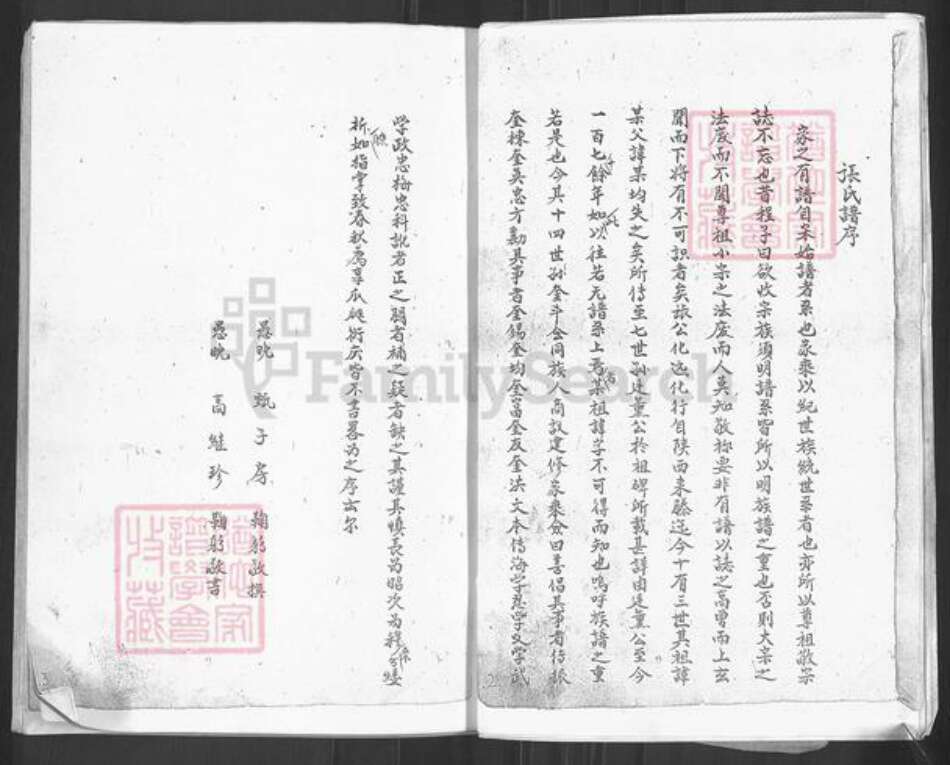 張氏譜序
家之有譜自宋始譜者系也家乘以紀世族統世系者也亦所以尊祖敬宗
誌不忘也昔程子曰欲收宗族須明譜系皆所以明族譜之重也否則大宗之
法廢而不聞尊祖小宗之法廢而人莫知敬祢要非有譜以誌之高曾而上玄
聞而下將有不可識者矣族公化 化行自陝西來滕迄今十有三世其祖諱
某父諱某均失之矣所傳至七世孫 董公於祖碑所載甚詳由 董公至今
一百七餘年如以往若无譜系上若某祖諱字不可得而知也嗚呼族譜之重
若是也今其十四世孫奎斗仝同族人商議建修家乘僉曰善倡其事者侍族
奎棟奎英忠方勷其事者奎錫奎均奎富奎友奎法文本傳海学忍学文学武
学政忠梅忠科訛者正之弱者補之疑者缺之其謹其慎長為昭次為穆分
析如指掌致春秋薦享瓜瓞衍庆皆不書畧為之序云尔
愚晚 甄子房 鞠躬敬撰
愚晚 高继珍 鞠躬敬書
FamilySearch
姓氏家譜學會收藏
2
3